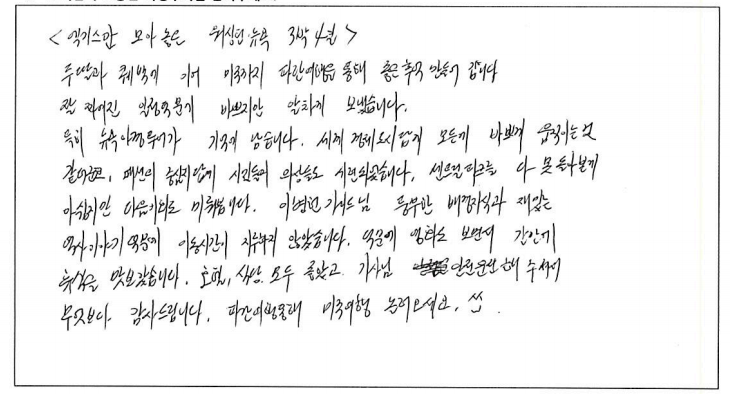 <엑기스만 모아 놓은 워싱턴 뉴욕 3박 4일>
두 딸과 퀘벡에 이어 미국까지 파란여행을 통해 좋은 추억 만들어 갑니다
잘 짜여진 일정덕분에 바쁘지만 알차게 보냈습니다.
특히 뉴욕야경투어가 기억에 남습니다. 세계 경제도시답게 모든게 바쁘게 움직이는것
같아보였고, 패션의 중심지답게 시민들의 의상들도 세련되었습니다. 센트럴 파크를 다 못 돌아본게
아쉽지만 다음기회로 미뤄봅니다. 이병헌 가이드님 풍부한 배경지식과 재밌는
역사이야기 덕분에 이동시간이 지루하지 않았습니다. 덕분에 영화도 보면서 간만에
휴식을 맛보았습니다. 호텔, 식사 모두 좋았고 기사님 안전운전 해 주셔서
무엇보다 감사드립니다. 파란여행통해 미국여행 놀러오세요.